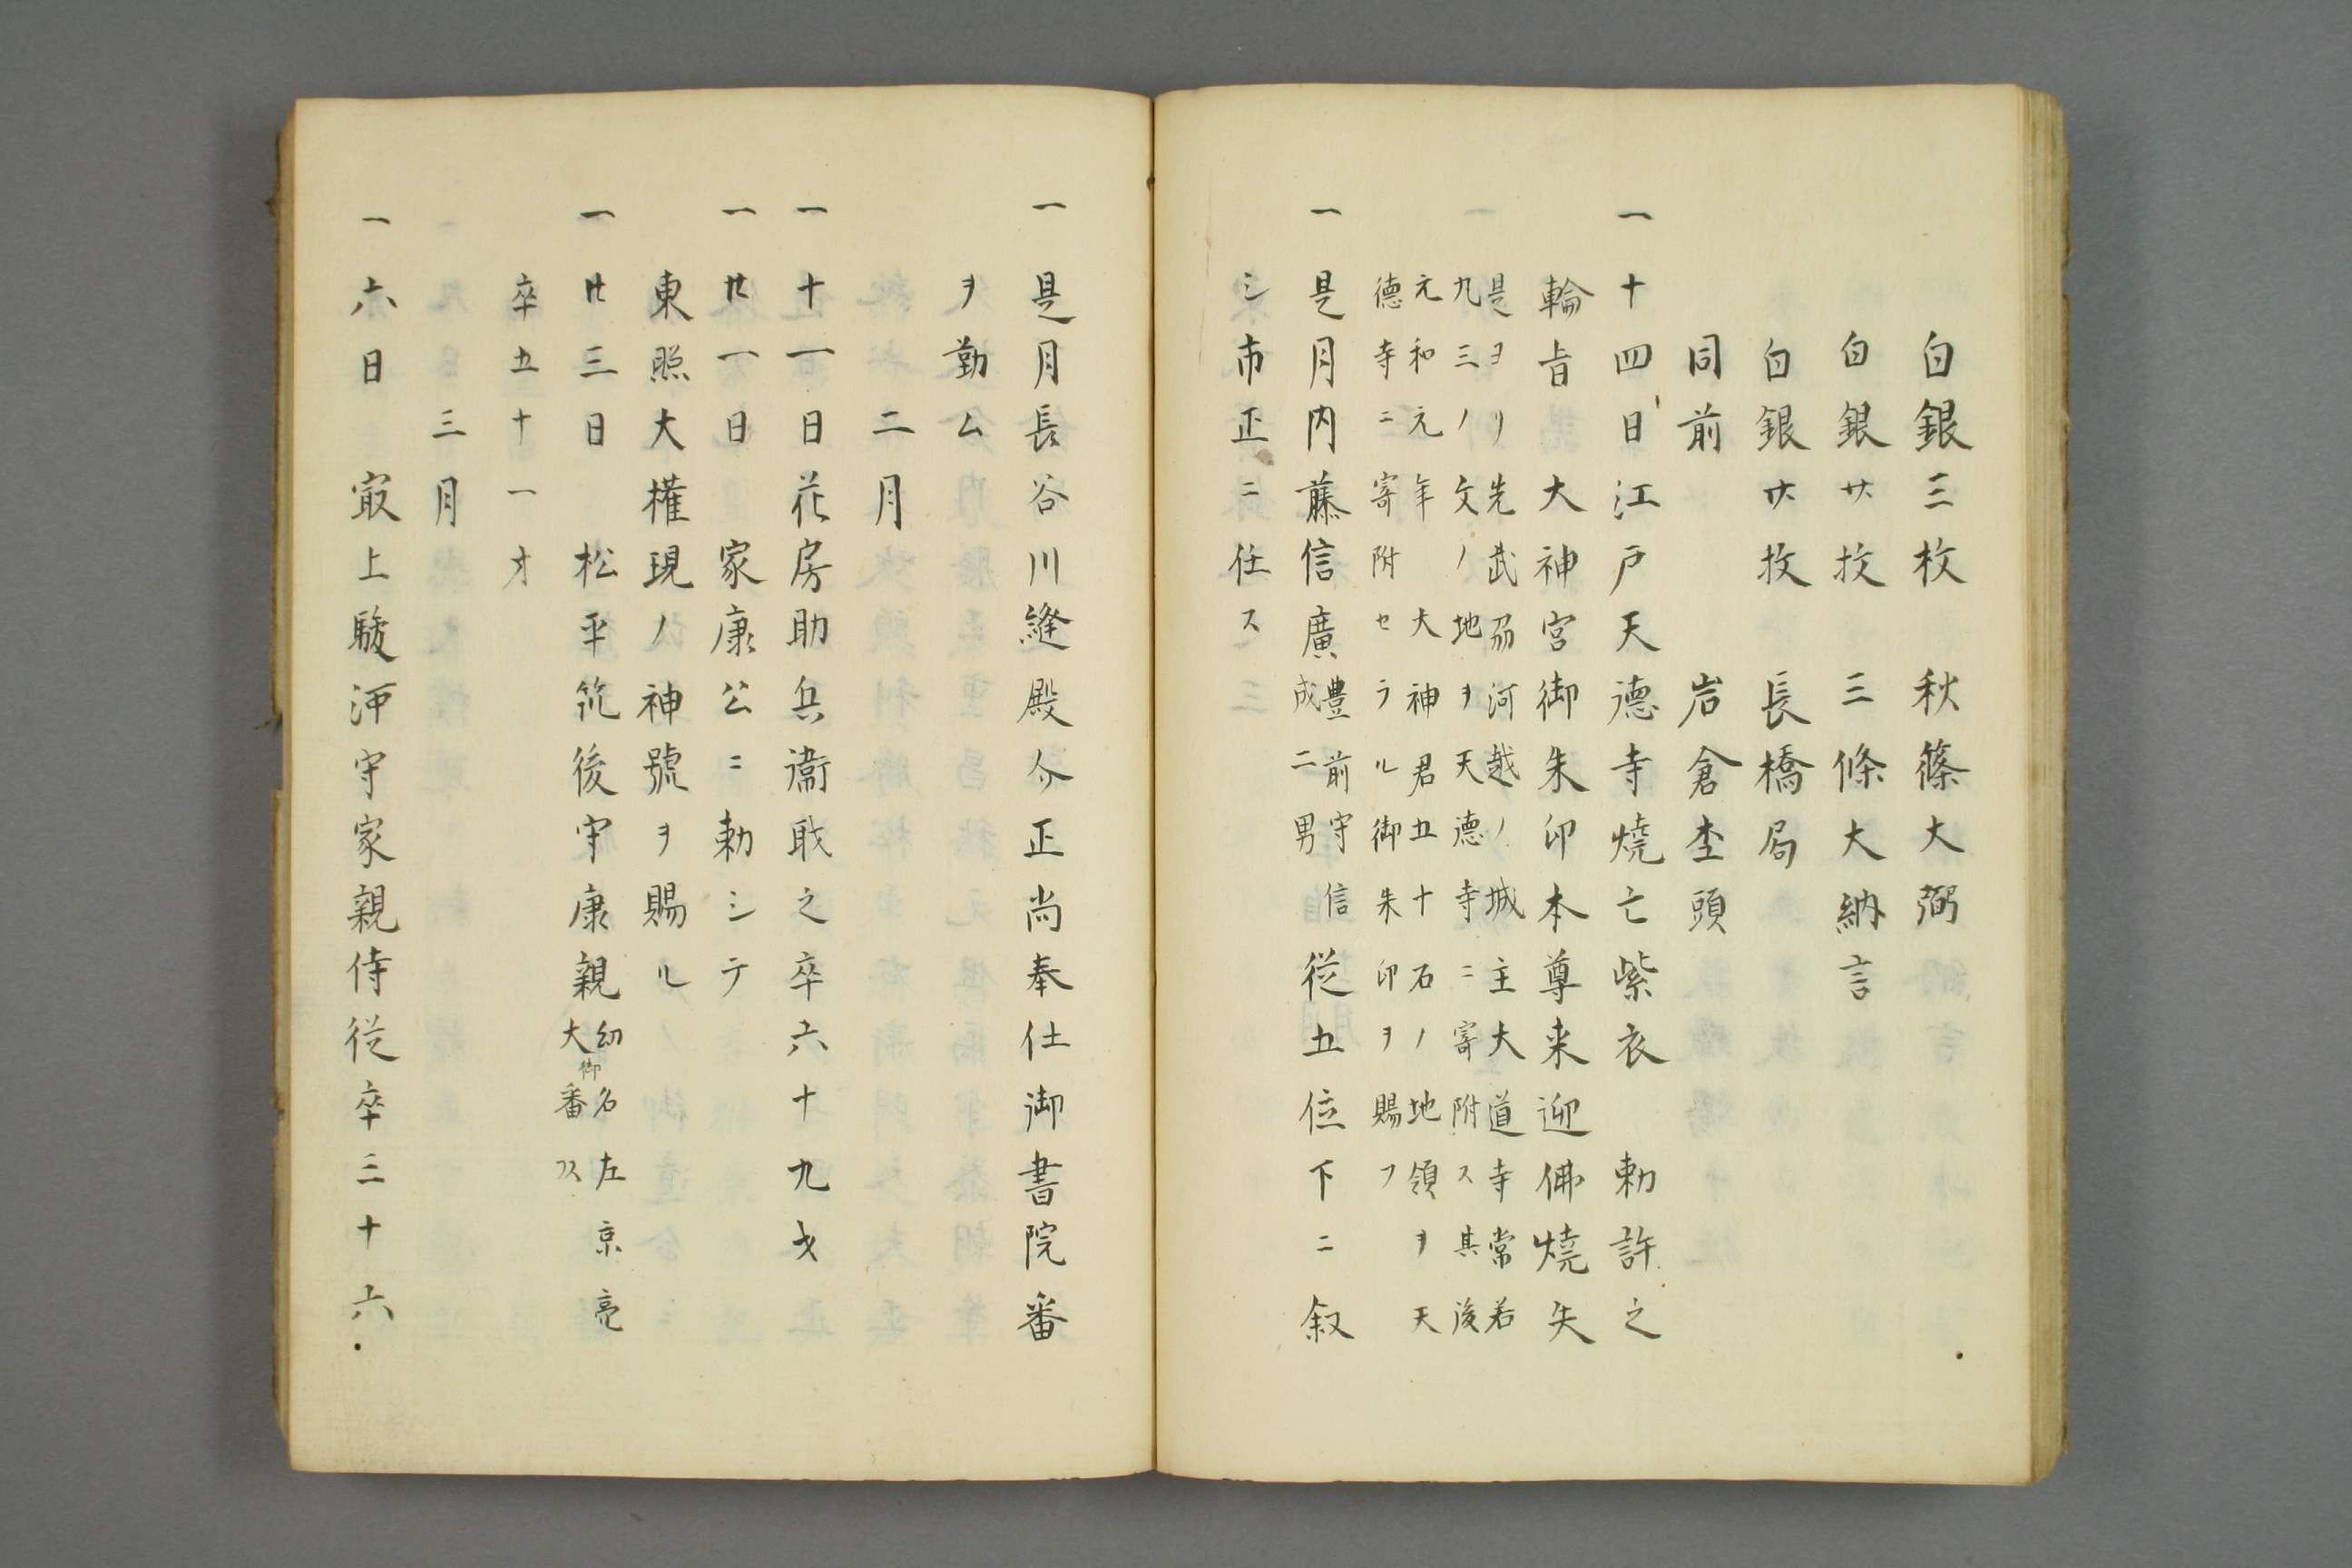 白銀三枚　秋篠大弼
白銀廿枚　三條大納言
白銀廿枚　長橋局
同前　岩倉杢頭
一十四日江戸天德寺燒亡紫衣　勅許之
輪旨　大神宮御朱印本尊来迎佛燒失
是ヨリ先武刕河越ノ城主大道寺常若
九三ノ文ノ地ヲ天德寺ニ寄附ス其後
元和元年大神君五十石ノ地領ヲ天
德寺ニ寄附セラル御朱印ヲ賜フ
一是月内藤信廣豊前守信成二男従五位下ニ叙
シ市正ニ任ス
一是月長谷川縫殿介正尚奉仕御書院番
ヲ勤ム
二月
一十一日花房助兵衞戢之卒六十九才
一廿一日　家康公ニ勅シテ
東照大權現ノ神號ヲ賜ル
一廿三日　松平筑後守康親幼名左京亮大御番ス
卒五十一才
三月
一六日　㝡上駿河守家親侍従卒三十六